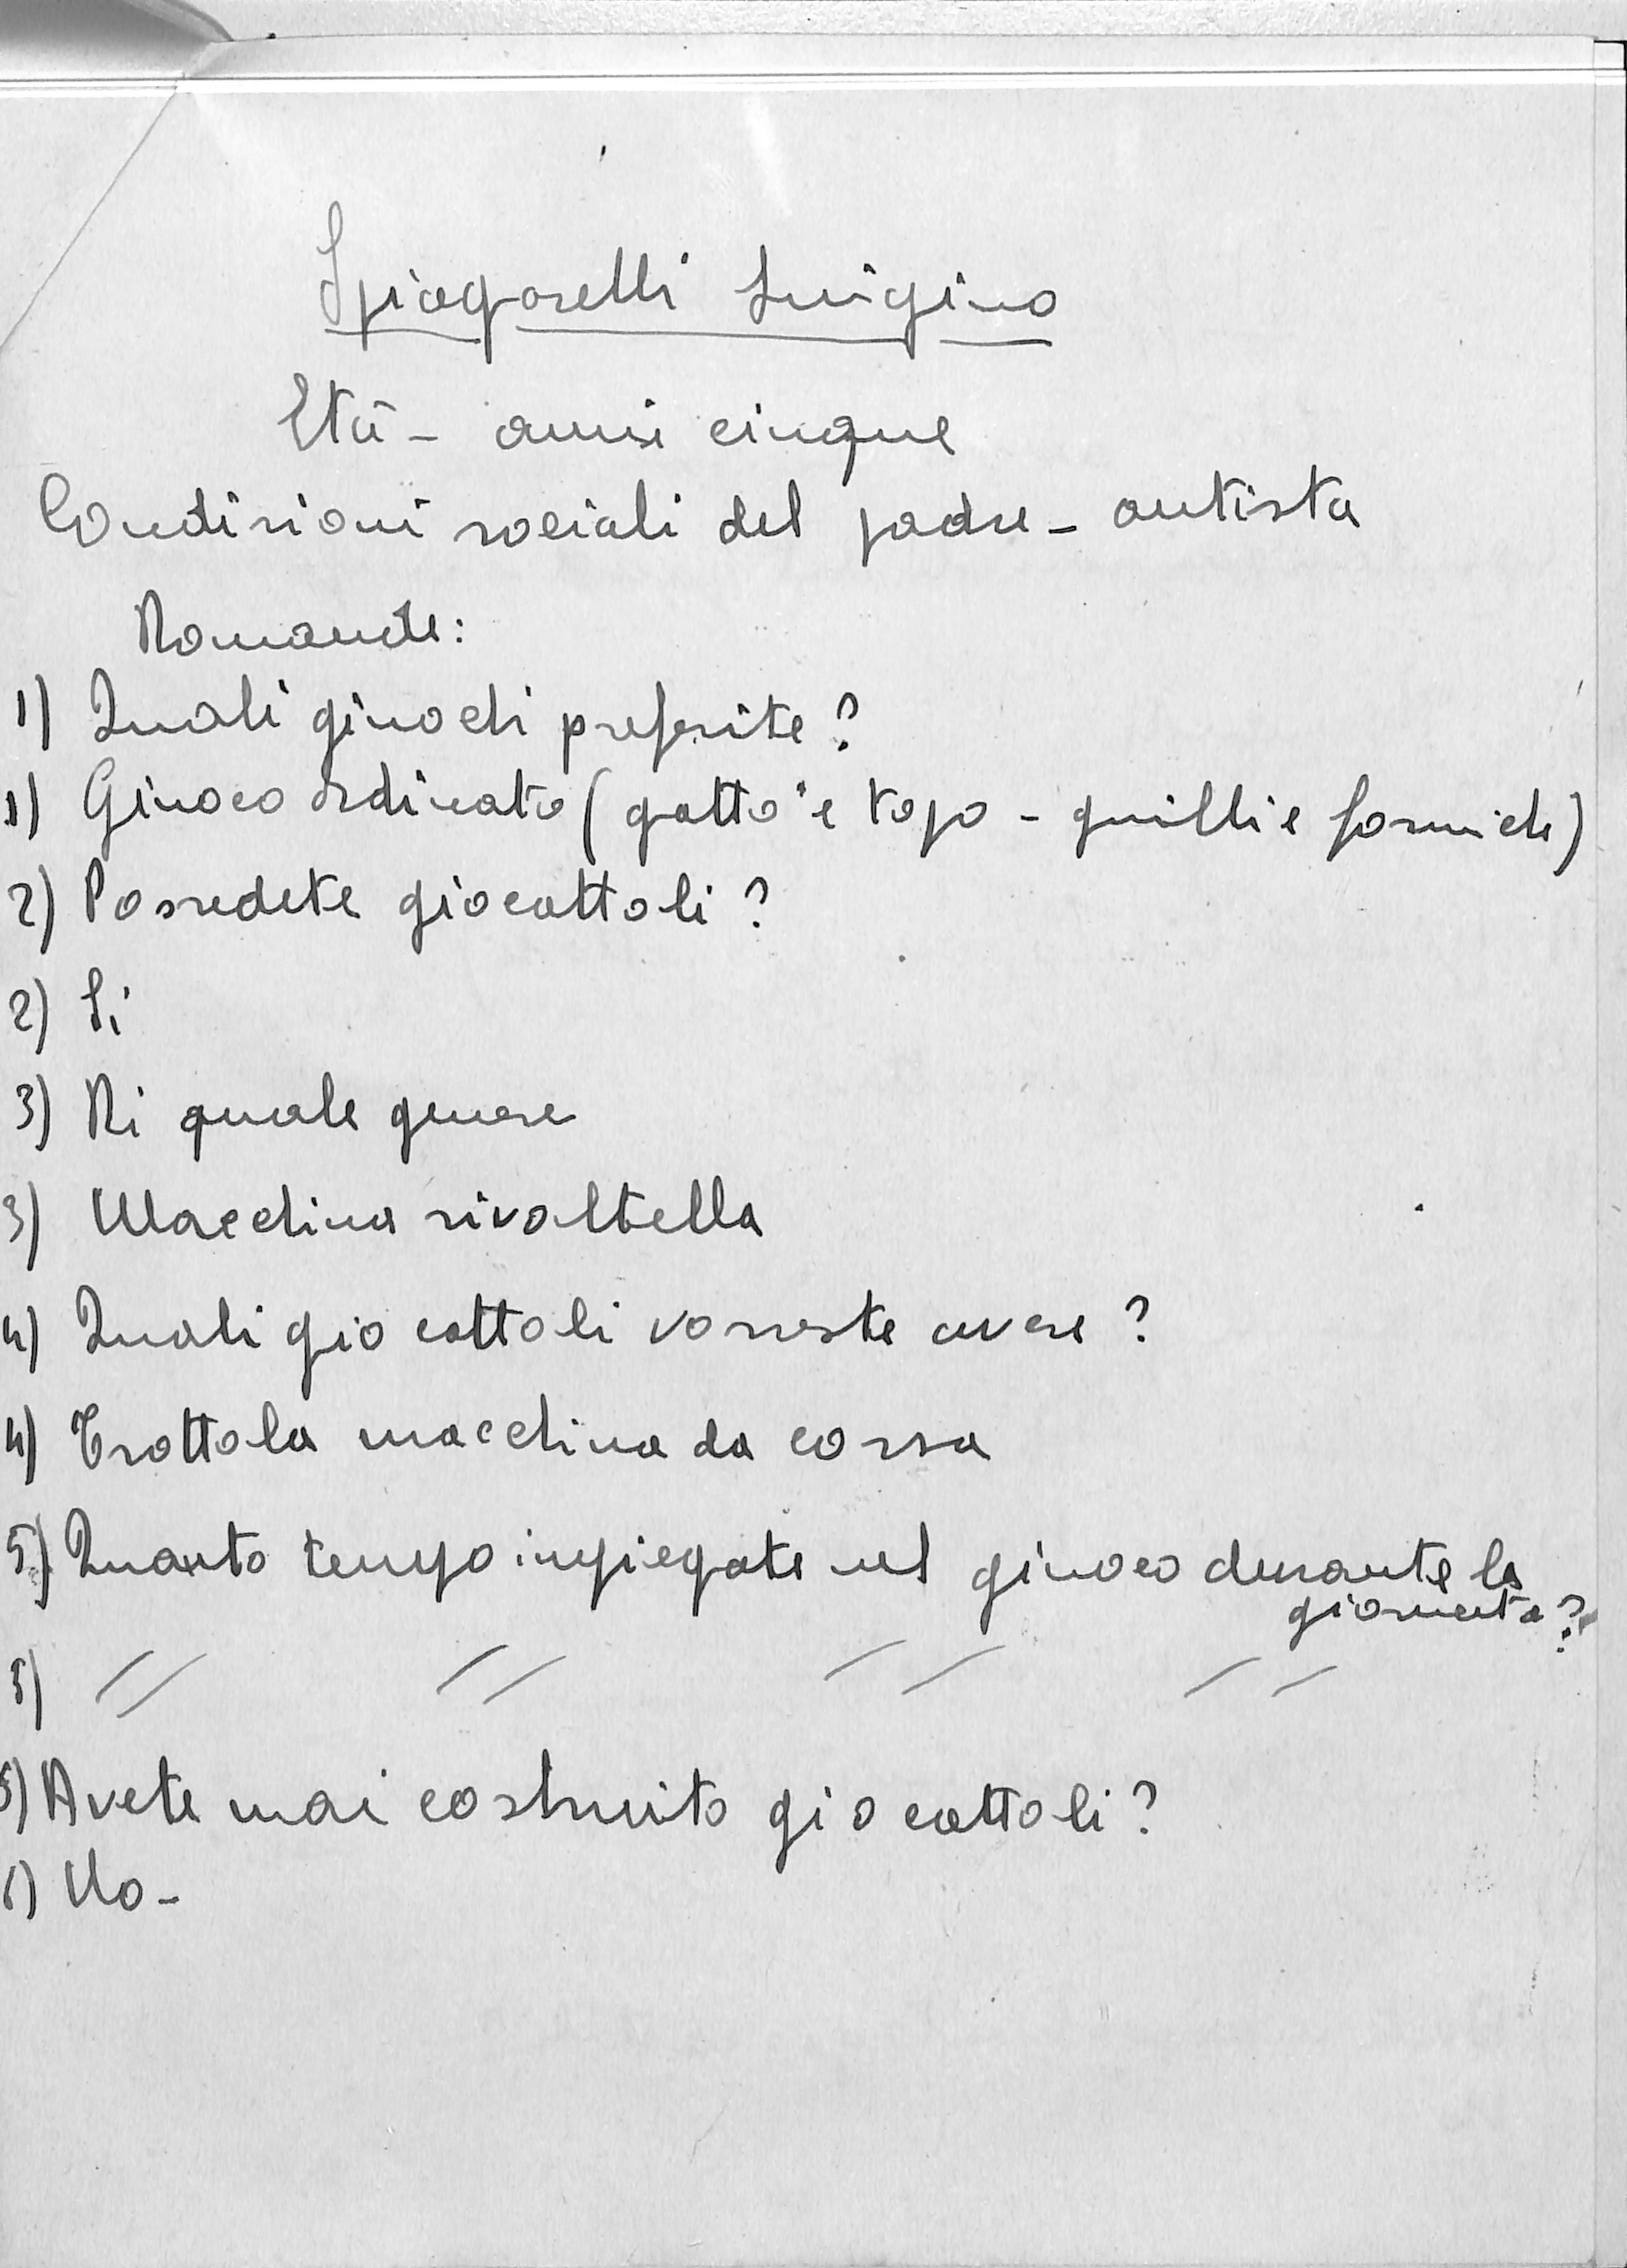 Spiagorelli Luigino
Età - anni cinque
Condizioni sociali del padre - autista
Domande:
1) Quali giuochi preferite?
1) Giuoco ordinato (gatto e topo - grilli e formiche)
2) Possedete giocattoli?
2) Si
3) Di quale genere
3) Macchina rivoltella
4) Quali giocattoli vorreste avere?
4) Trottola macchina da corsa
5) Quanto tempo impiegate nel giuoco durante la
giornata?
5) // // // //
6) Avete mai costruito giocattoli?
6) No -